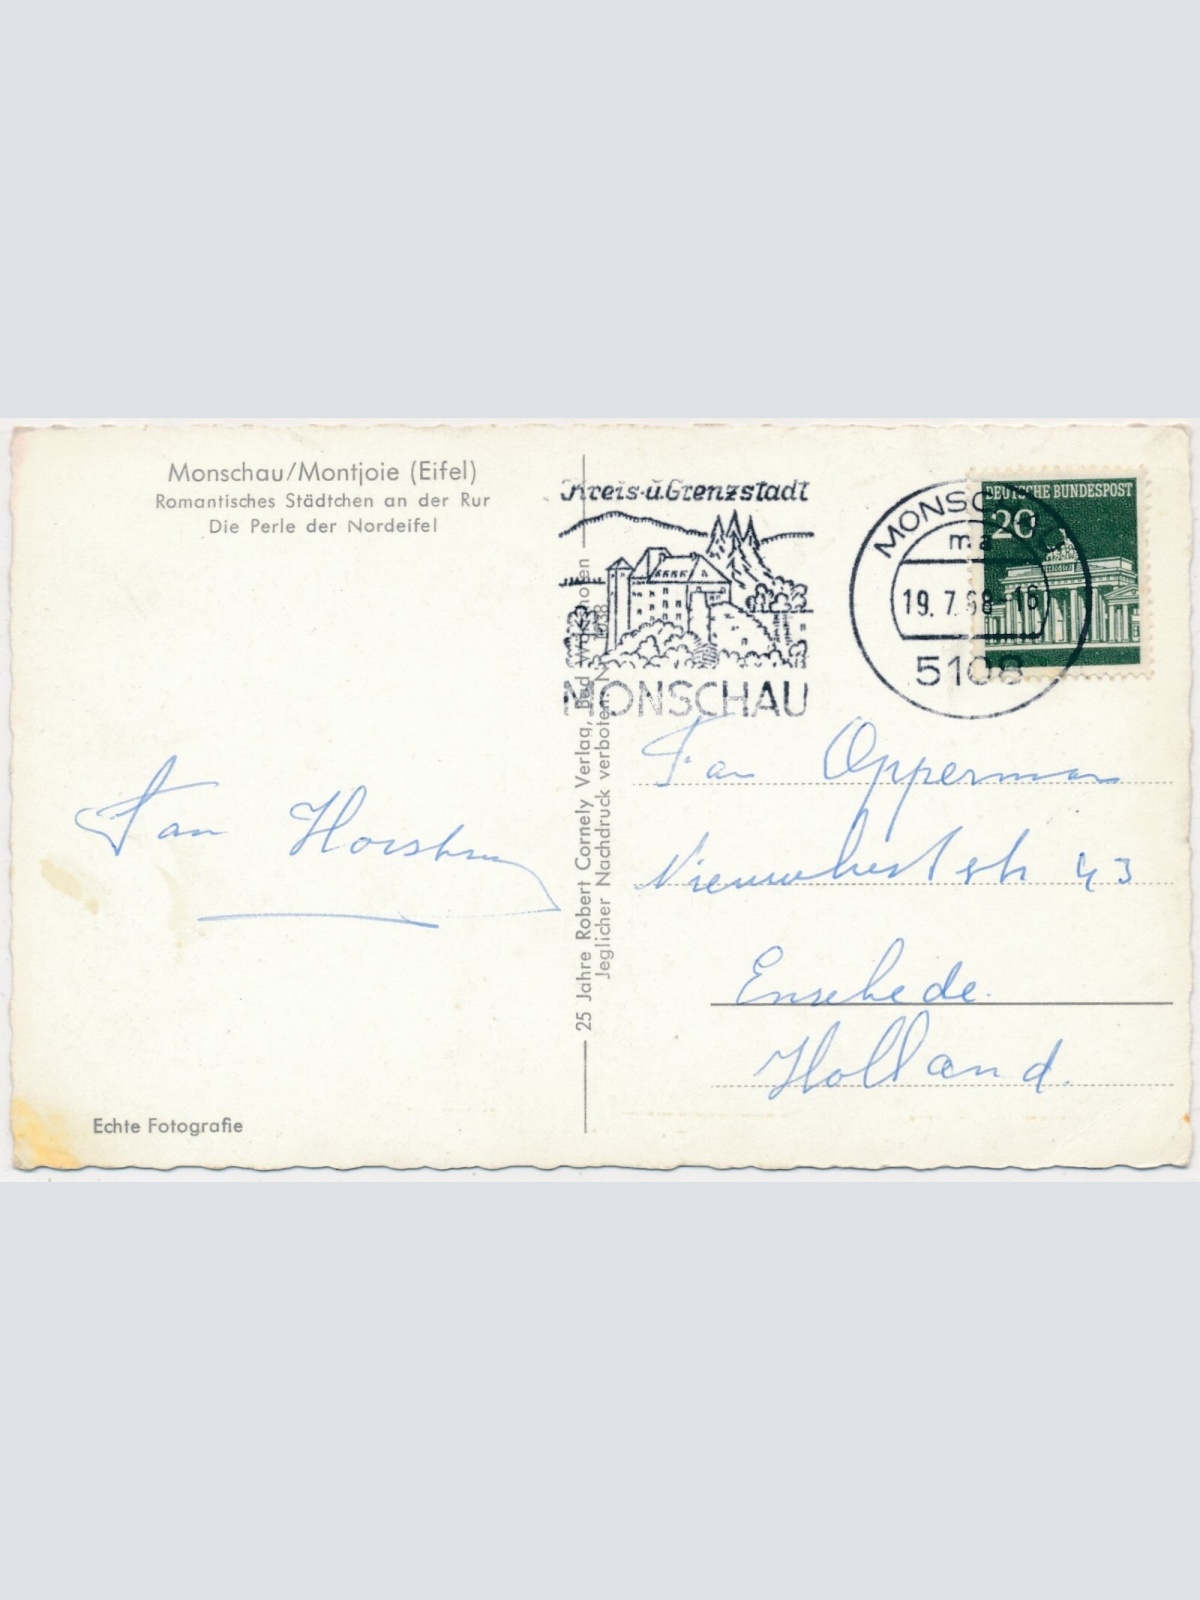 Monschau/Montjoie (Eifel)
Romantisches Städtchen an der Rur
Die Perle der Nordeifel
Kreis- u. Grenzstadt
MONSCHAU
MONSCHAU
ma
19. 7. 68-16
5108
DEUTSCHE BUNDESPOST
20
Fam Opperman
43
Enschede.
Holland.
25 Jahre Robert Cornely Verlag, Bad Wörishofen
Jeglicher Nachdruck verboten
Echte Fotografie